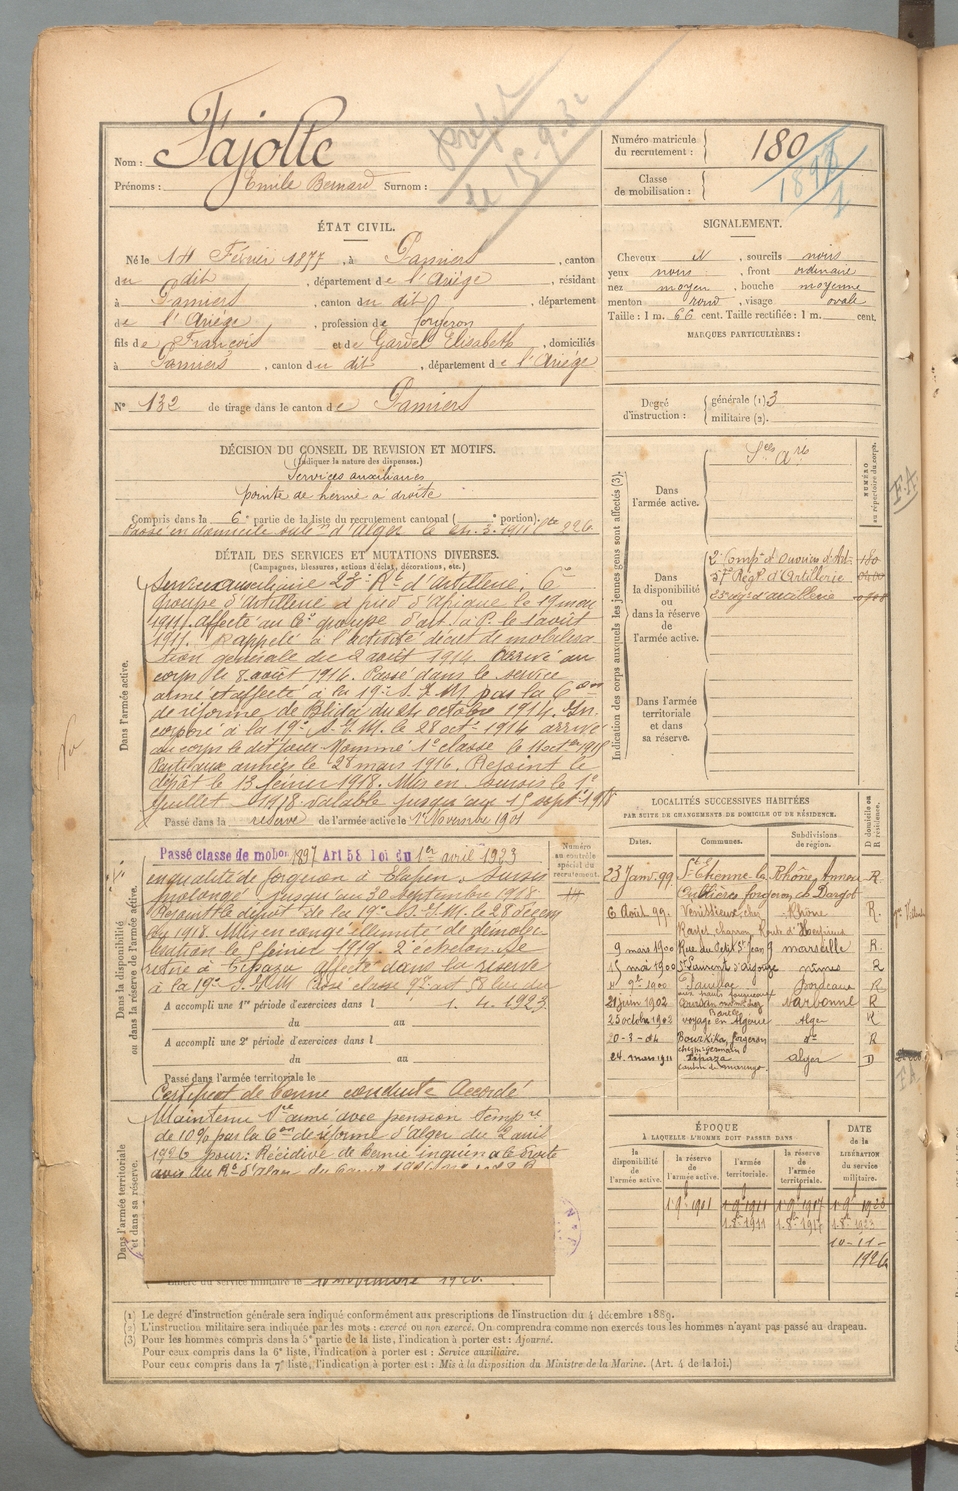 Nom : Fajolle
Prénoms : Emile Bernard Surnom :
Numéro matricule du recrutement : 180
Classe de mobilisation :
ÉTAT CIVIL.
Né le 14 Février 1877, à Pamiers, canton
du dit, département de l'Ariège, résidant
à Pamiers, canton du dit, département
de l'Ariège, profession de forgeron
fils de François et de Gardel Elisabeth, domiciliés
à Pamiers, canton du dit, département de l'Ariège
N° 132 de tirage dans le canton de Pamiers
SIGNALEMENT.
Cheveux N, sourcils noirs
yeux noirs, front ordinaire
nez moyen, bouche moyenne
menton rond, visage ovale
Taille : 1 m. 66 cent. Taille rectifiée : 1 m. cent.
MARQUES PARTICULIÈRES :
Degré d'instruction : générale (1) 3
militaire (2).
DÉCISION DU CONSEIL DE REVISION ET MOTIFS.
(Indiquer la nature des dispenses.)
Services auxiliaires
pointe de hernie à droite
Compris dans la 6e partie de la liste du recrutement cantonal ( e portion).
Passé en domicile d'Alger le 24.3.1911 226
DÉTAIL DES SERVICES ET MUTATIONS DIVERSES.
(Campagnes, blessures, actions d'éclat, décorations, etc.)
Dans l'armée active.
Service auxiliaire 23e Rt d'Artillerie. 6e
Groupe d'Artillerie à pied d'Afrique le 19 mai
1911. affecté au 6e groupe d'art. à P. le 1 août
1911. Rappelé à l'activité décret de mobilisa
tion générale du 2 août 1914 Arrivé au
corps le 8 août 1914. Passé dans le service
armé et affecté à la 19e S.I.M par la Con
de réforme de Blida du 24 octobre 1914. In
corporé à la 19e S.I.M. le 28 oct. 1914 arrivé
au corps le dit jour. Nommé 1e classe le
Parti aux armées le 28 mars 1916. Rejoint le
dépôt le 13 février 1918. Mis en sursis le 1e
Juillet 1918 valable jusqu'au 15 septe 1918
Passé dans la réserve de l'armée active le 1er Novembre 1901
Dans la disponibilité ou dans la réserve de l'armée active.
Passé classe de mobon 1897 Art 58 loi du 1er avril 1923
en qualité de forgeron à Sursis
prolongé jusqu'au 30 septembre 1918.
Rejoint le dépôt de la 19e S.I.M. le 28 décem
bre 1918. Mis en congé illimité de démobi
lisation le 5 février 1919. 2e échelon. Se
retire à Tipaza affecté dans la réserve
à la 19e S.I.M Passé classe art 58 loi du
A accompli une 1re période d'exercices dans l 1.4.1923
du au
A accompli une 2e période d'exercices dans l
du au
Passé dans l'armée territoriale le
Certificat de bonne conduite Accordé
Numéro au contrôle spécial du recrutement.
Dans l'armée territoriale et dans sa réserve.
Maintenu Sce armé avec pension tempre
de 10% par la Con de réforme d'Alger du 2 avril
1926 pour : Récidive de hernie inguinale droite
Libéré du service militaire le 10 novembre 1926.
Indication des corps auxquels les jeunes gens sont affectés (3).
NUMÉRO au répertoire du corps.
Dans l'armée active.
Ses Ares
Dans la disponibilité ou dans la réserve de l'armée active.
2e Compie d'Ouvriers d'Art 180
Régt d'Artillerie
23e rgt d'artillerie
Dans l'armée territoriale et dans sa réserve.
F.A
LOCALITÉS SUCCESSIVES HABITÉES
PAR SUITE DE CHANGEMENTS DE DOMICILE OU DE RÉSIDENCE.
Dates. Communes. Subdivisions de région. D domicile ou R résidence.
23 Janv. 99. St Etienne la R
6 Août 99. Venissieux chez Rhône R.
9 mars 1900 Rue du Petit St Jean 9 marseille R
15 mai 1900 St Laurent d'Aigouze nîmes R
1900 Pauillac bordeaux R
21 juin 1902 narbonne R
25 octobre 1902 voyage en Algérie Alger R
0-3-04 Bourkika, forgeron do R
24 mars 1911 Tipaza alger D
ÉPOQUE
À LAQUELLE L'HOMME DOIT PASSER DANS
la disponibilité de l'armée active. la réserve de l'armée active. l'armée territoriale. la réserve de l'armée territoriale. DATE de la LIBÉRATION du service militaire.
1 9e 1901 1 9e 1911 1 9e 1917 1 9e 1923
1.8e 1911 1.8e 1917 1.8e 1923
10-11-1926
(1) Le degré d'instruction générale sera indiqué conformément aux prescriptions de l'instruction du 4 décembre 1889.
(2) L'instruction militaire sera indiquée par les mots : exercé ou non exercé. On comprendra comme non exercés tous les hommes n'ayant pas passé au drapeau.
(3) Pour les hommes compris dans la 5e partie de la liste, l'indication à porter est : Ajourné.
Pour ceux compris dans la 6e liste, l'indication à porter est : Service auxiliaire.
Pour ceux compris dans la 7e liste, l'indication à porter est : Mis à la disposition du Ministre de la Marine. (Art. 4 de la loi.)